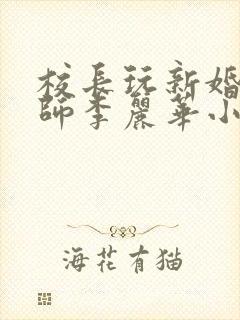 校長玩新婚
師李麗華小
海花有猫